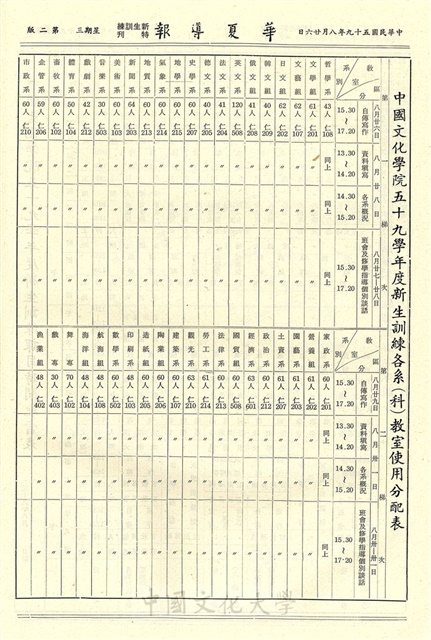 中華民國五十九年八月廿六日
華夏導報
新生訓練特刊
星期三
第二版
中國文化學院五十九學年度新生訓練各系(科)教室使用分配表
教室區分 系別 第一梯次
八月廿六日 15.30~17.20 自傳寫作
八月廿八日 13.30~14.20 資料填寫
14.30~15.20 各系概況
八月廿七-廿八日 15.30~17.20 班會及修學指導個別談話
哲學系 43人 仁108 同上 同上 同上
文學組 61人 仁201 〃 〃 〃
文藝組 62人 仁107 〃 〃 〃
日文組 62人 仁202 〃 〃 〃
韓文組 40人 仁208 〃 〃 〃
俄文組 41人 仁209 〃 〃 〃
英文系 120人 仁508 〃 〃 〃
法文系 41人 仁204 〃 〃 〃
德文系 40人 仁205 〃 〃 〃
史學系 60人 仁207 〃 〃 〃
地學系 60人 仁215 〃 〃 〃
氣象系 60人 仁214 〃 〃 〃
地質系 60人 仁213 〃 〃 〃
新聞系 64人 仁203 〃 〃 〃
美術系 60人 仁103 〃 〃 〃
音樂系 30人 仁503 〃 〃 〃
戲劇系 42人 仁212 〃 〃 〃
體育系 50人 仁104 〃 〃 〃
畜牧系 60人 仁102 〃 〃 〃
企管系 59人 仁206 〃 〃 〃
市政系 60人 仁210 〃 〃 〃
教室區分 系別 第二梯次
八月廿九日 15.30~17.20 自傳寫作
八月卅一日 13.30~14.20 資料填寫
14.30~15.20 各系概況
八月卅-卅一日 15.30~17.20 班會及修學指導個別談話
家政系 60人 仁201 同上 同上 同上
營養組 61人 仁202 〃 〃 〃
園藝系 61人 仁203 〃 〃 〃
土資系 61人 仁207 〃 〃 〃
政治系 60人 仁212 〃 〃 〃
經濟系 63人 仁601 〃 〃 〃
國貿組 60人 仁508 〃 〃 〃
法律系 61人 仁213 〃 〃 〃
勞工系 61人 仁214 〃 〃 〃
觀光系 63人 仁210 〃 〃 〃
建築系 60人 仁107 〃 〃 〃
陶業組 60人 仁206 〃 〃 〃
造紙組 48人 仁205 〃 〃 〃
印刷系 48人 仁103 〃 〃 〃
數學系 60人 仁502 〃 〃 〃
航海組 48人 仁108 〃 〃 〃
海洋組 48人 仁104 〃 〃 〃
舞專 70人 仁102 〃 〃 〃
戲專 30人 仁403 〃 〃 〃
漁業組 48人 仁402 〃 〃 〃
中國文化大學